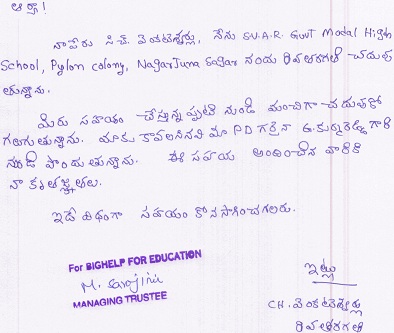 ఆర్యా!
నా పేరు సి.హెచ్. వెంకటేశ్వర్లు, నేను S.V.A.R. Govt Modal High
School, Pylon colony, NagarJuna Sagar నందు 9వ తరగతి చదువు
తున్నాను.
మీరు సహాయం చేస్తున్నప్పటి నుండి మంచిగా చదువుకో
గలుగుతున్నాను. మాకు కావలసినవి మా PD గారైన గారి
నుండి పొందుతున్నాను. ఈ సహాయ అందించిన వారికి
నా కృతజ్ఞతలు.
ఇదే విధంగా సహాయం కొనసాగించగలరు.
For BIGHELP FOR EDUCATION
M. Sarojini
MANAGING TRUSTEE
ఇట్లు
CH. వెంకటేశ్వర్లు
9వ తరగతి